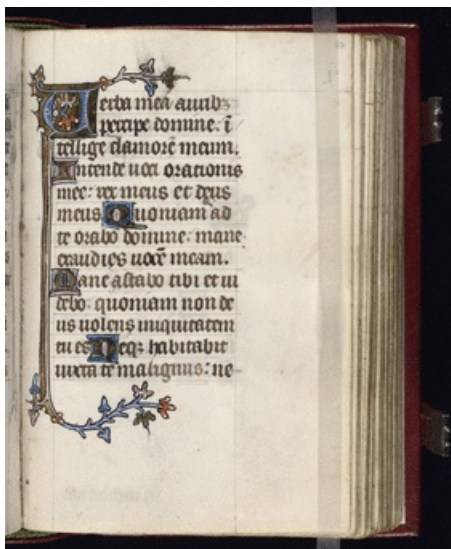 Verba mea aurib⁹
percipe domine. ī
tellige clamorē meum.
Intende uoci orationis
mee: rex meus et deus
meus. Quoniam ad
te orabo domine: mane
exaudies uocē meam.
Mane astabo tibi et ui
debo: quoniam non de
us uolens iniquitatem
tu es. Neqꝫ habitabit
iuxta te malignus: ne